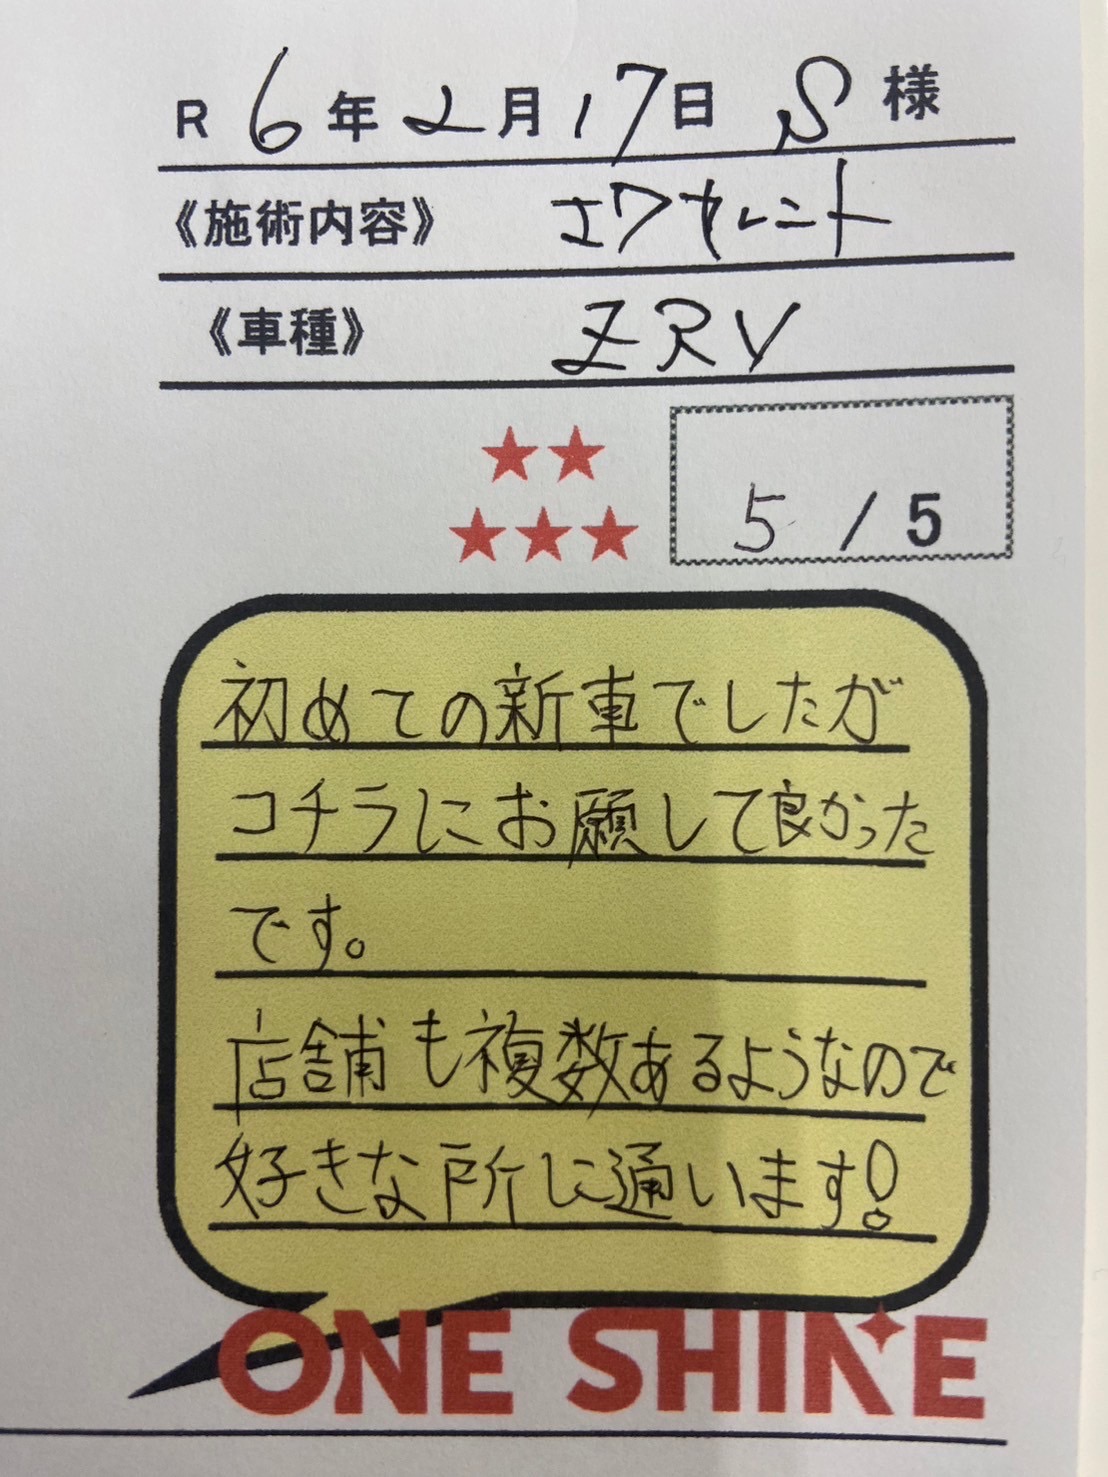 R 6年 2月 17日 S 様
《施術内容》 エクセレント
《車種》 ZRV
5 / 5
初めての新車でしたが
コチラにお願して良かった
です。
店舗も複数あるようなので
好きな所に通います!
ONE SHINE